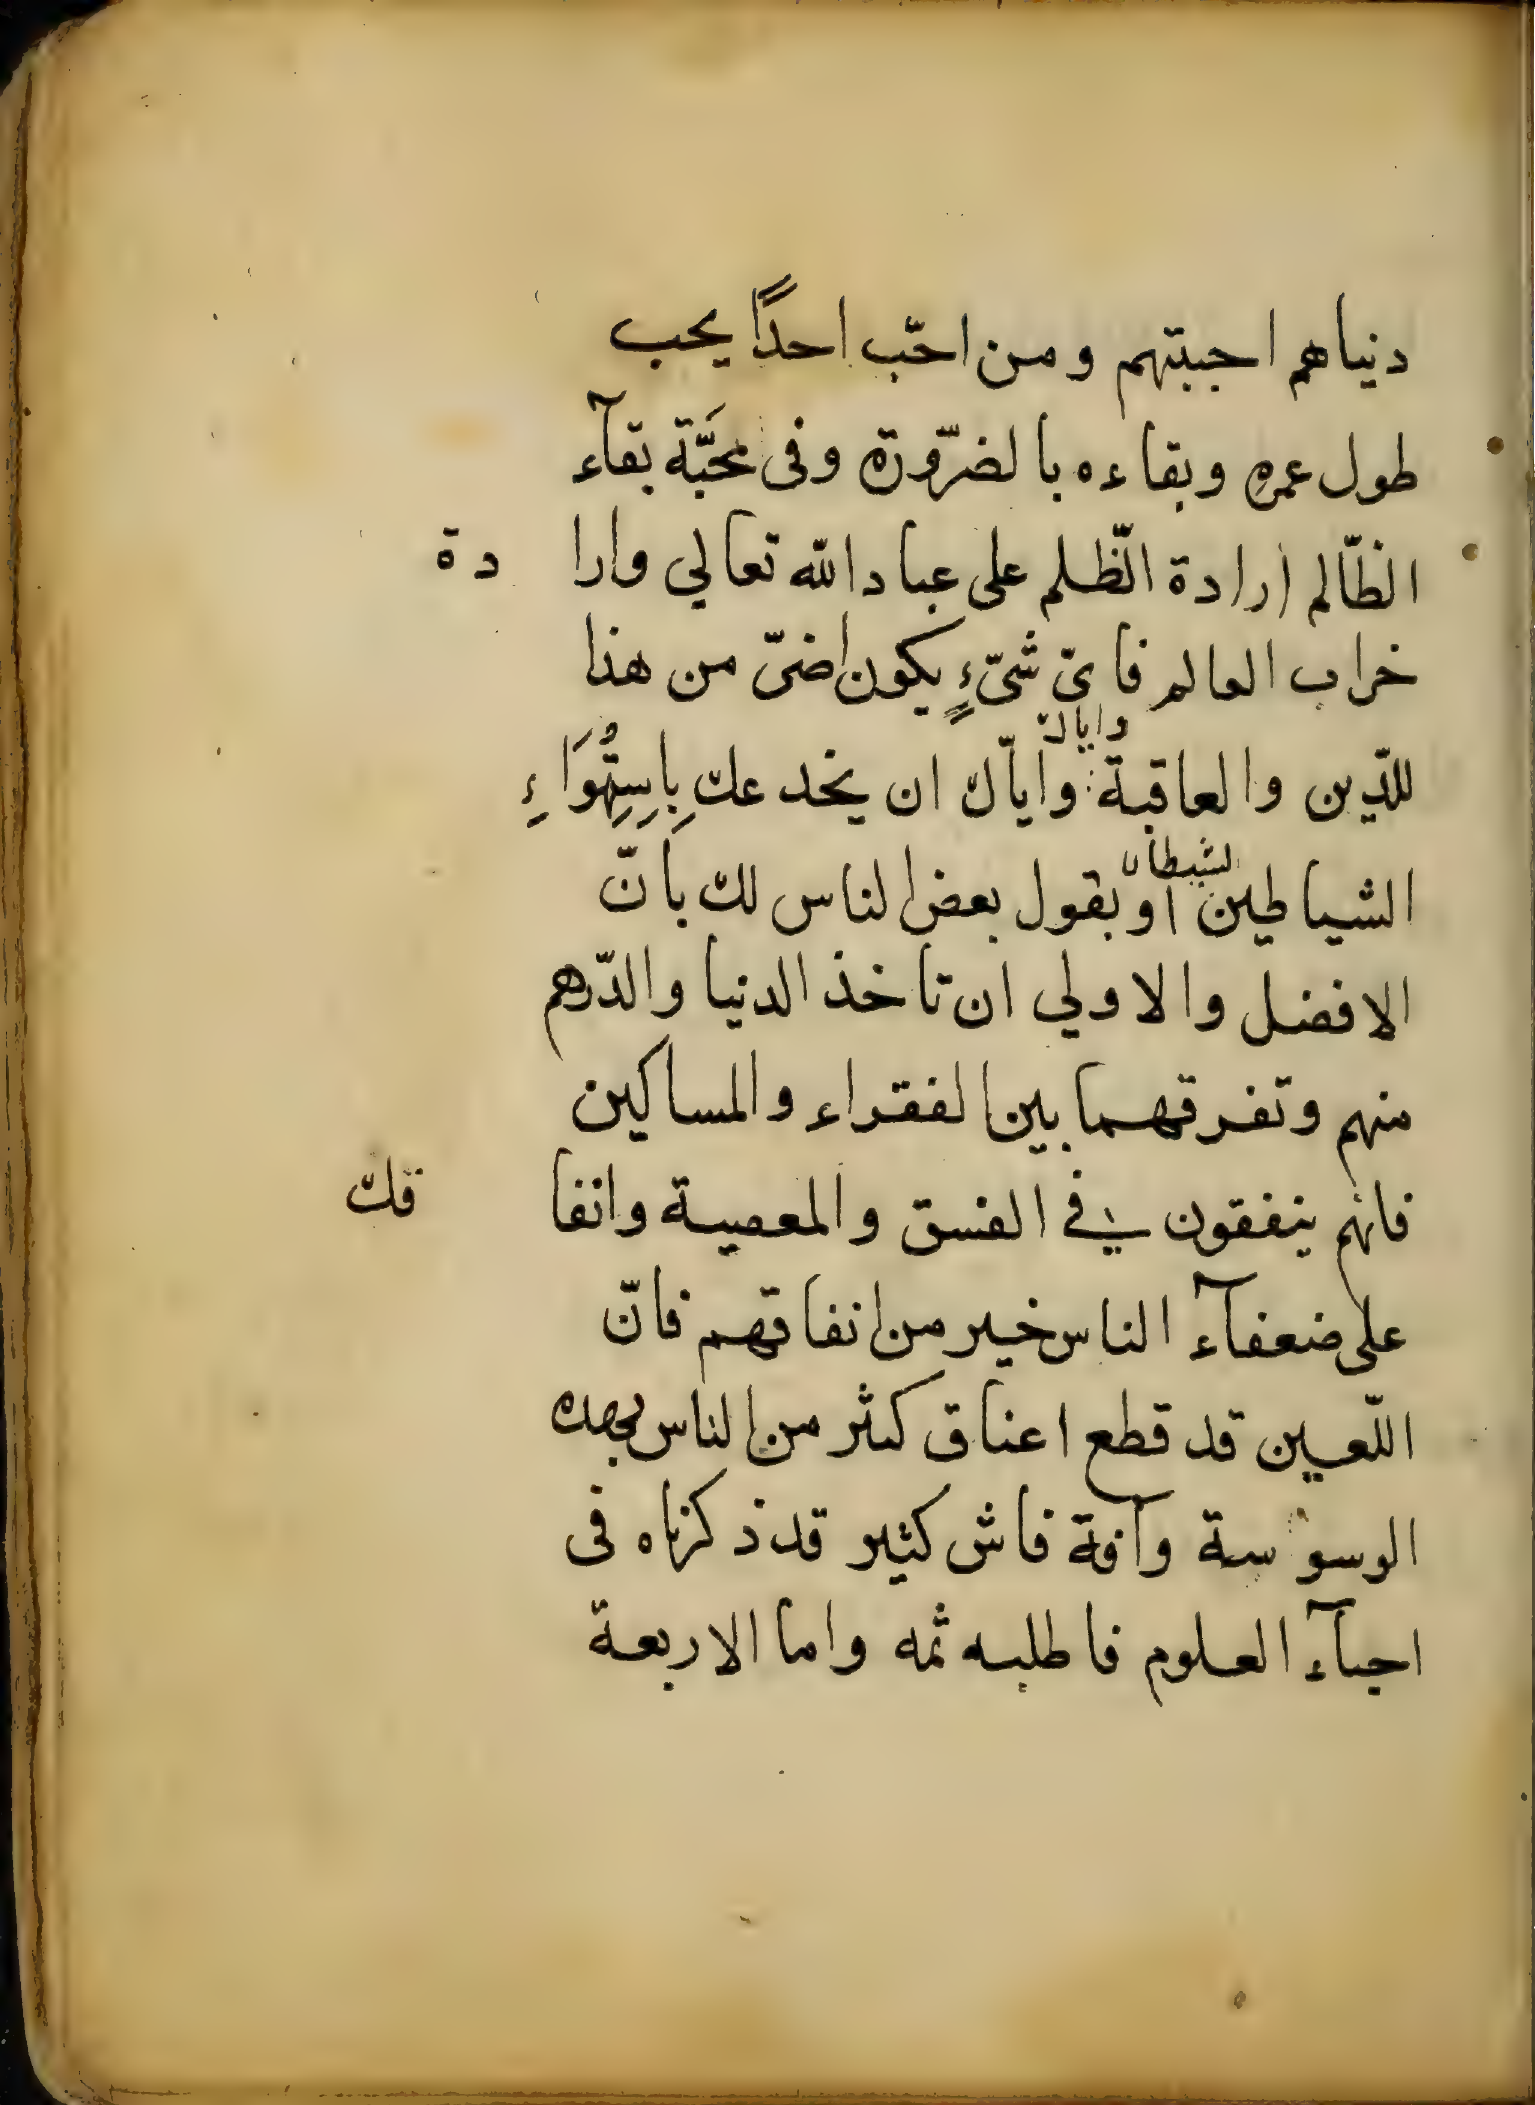 دنياهم احببتهم ومن احبّ احدًا يحب
طول عمرهِ وبقاءه بالضرّورة وفى محَبَّة بقآء
الظّالم ارادة الظّلم على عباد الله تعالي وارادة
خراب العالم فاىّ شىّءٍ يكون اضرّ من هذا
واياك
للدّين والعاقبة واياّك ان يخدعك بِاسِتِهُوَاءِ
الشيطان
الشياطين او يقول بعض الناس لك بَانّ
الافضل والاولي ان تاخذ الدنيا والدّرهم
منهم وتفرقهما بين الفقراء والمساكين
فانهم ينفقون في الفسق والمعصية وانفاقك
على ضعفآء الناس خير من انفاقهم فانّ
اللّعين قد قطع اعناق كثر من الناس بهده
الوسوسة وآفة فاش كثير قد ذكرناه فى
احيآء العلوم فاطلبه ثمه واما الاربعة